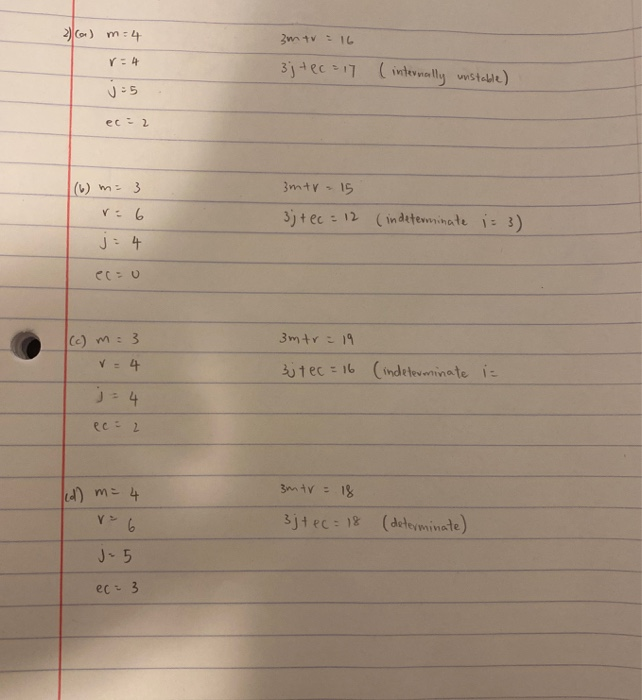 2) (a) m = 4 3m+r = 16
r = 4 3j+ec = 17 (internally unstable)
j = 5
ec = 2
(b) m = 3 3m+r = 15
r = 6 3j+ec = 12 (indeterminate i = 3)
j = 4
ec = 0
(c) m = 3 3m+r = 19
r = 4 3j+ec = 16 (indeterminate i =
j = 4
ec = 2
(d) m = 4 3m+r = 18
r = 6 3j+ec = 18 (determinate)
j = 5
ec = 3